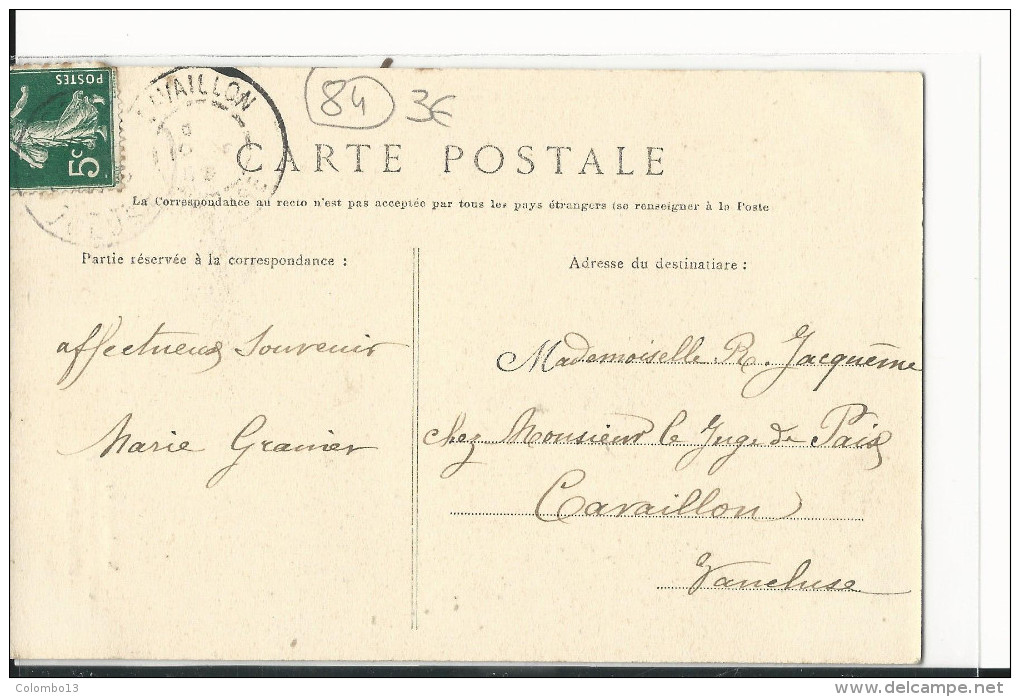 POSTES
5c
AVAILLON
84
3€
CARTE POSTALE
La Correspondance au recto n'est pas acceptée par tous les pays étrangers (se renseigner à la Poste
Partie réservée à la correspondance :
Adresse du destinatiare :
affectueux Souvenir
Marie Granier
Mademoiselle R. Jacquème
chez Monsieur le Juge de Paix
Cavaillon
Vaucluse
Colombo13
delcampe.net